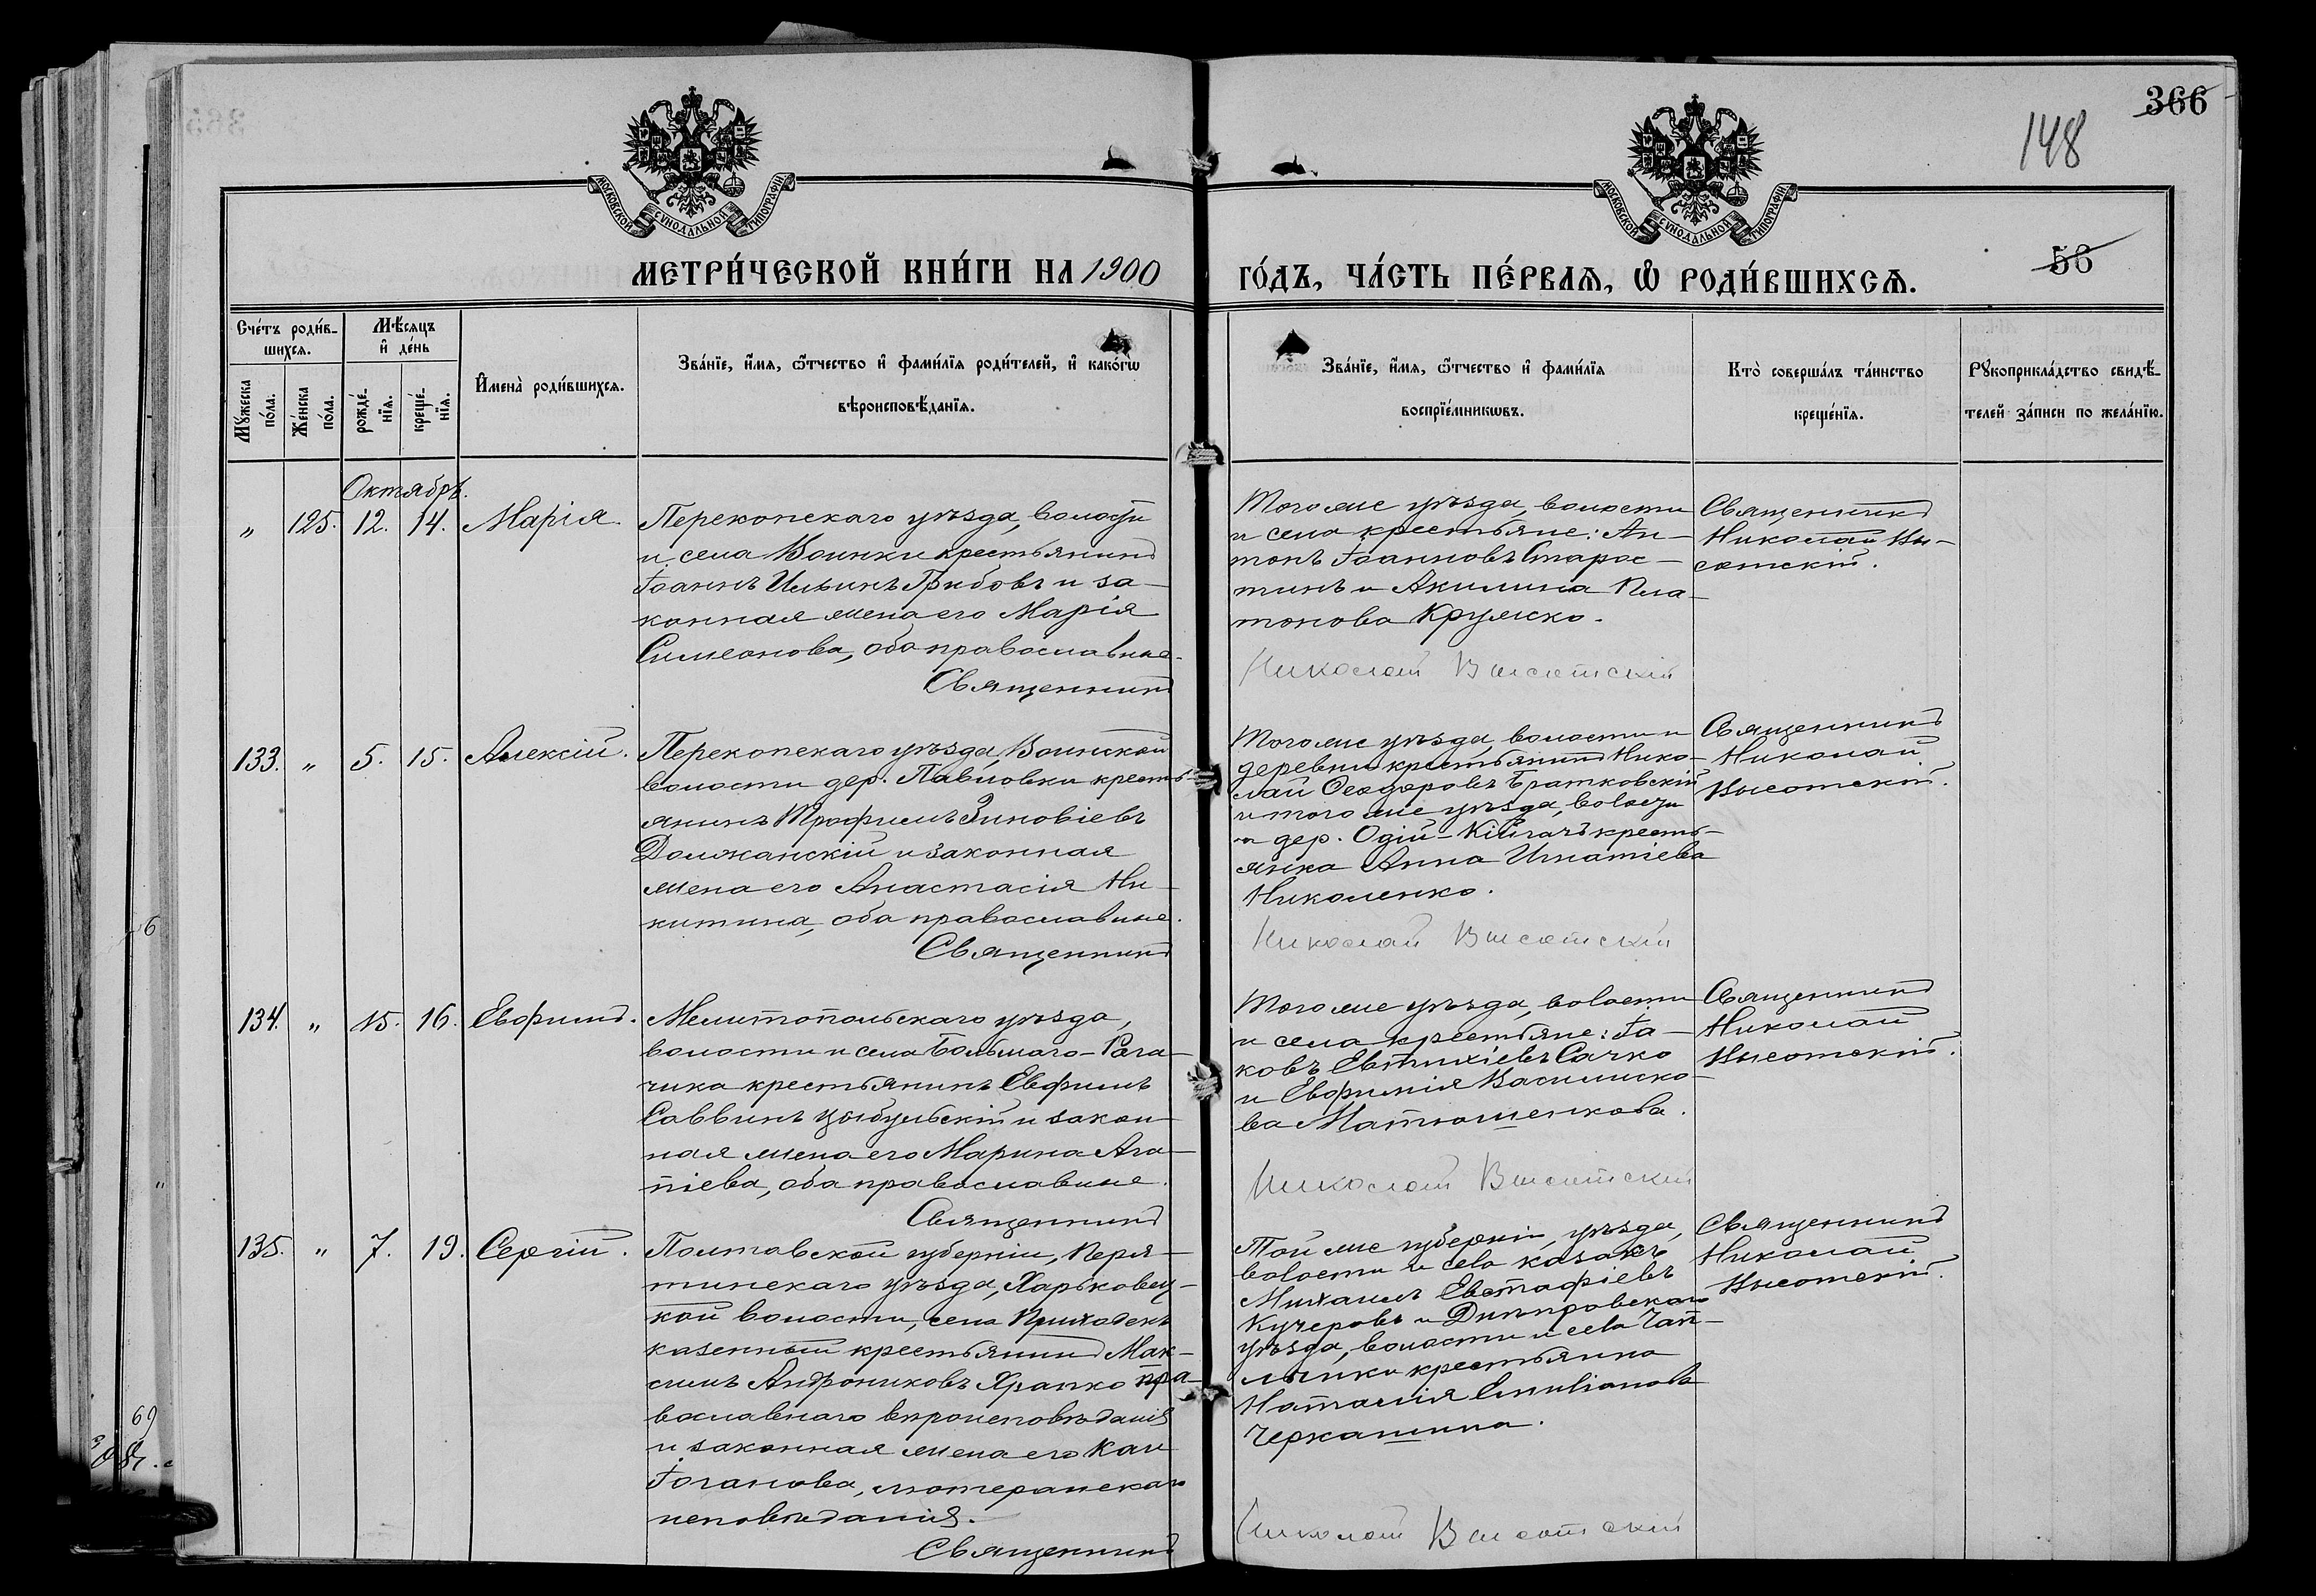 366
148
МОСКОВСКОЙ СѴНОДАЛЬНОЙ ТИПОГРАФІИ
МОСКОВСКОЙ СѴНОДАЛЬНОЙ ТИПОГРАФІИ
МЕТРИ́ЧЕСКОЙ КНИ́ГИ НА 1900
ГО́ДЪ, ЧА́СТЬ ПЕ́РВАЯ, Ѡ҆ РОДИ́ВШИХСЯ.
58
Сче́тъ роди́в-
шихся.
Мѣ́сяцъ
и҆ де́нь
Мꙋ́жеска
по́ла.
Же́нска
по́ла.
рожде́-
нїя.
креще́-
нїя.
И҆мена̀ роди́вшихся.
Зва́нїе, и҆́мя, ѻ҆́тчество и҆ фами́лїя роди́телей, и҆ како́гѡ
вѣроисповѣ́данїя.
Зва́нїе, и҆́мя, ѻ҆́тчество и҆ фами́лїя
воспрїе́мникѡвъ.
Кто̀ соверша́лъ та́инство
креще́нїя.
Рꙋкоприкла́дство свидѣ́-
телей за́писи по жела́нїю.
Октябрь.
„ 125. 12. 14. Марія.
Перекопскаго уѣзда, волости
и села Воинки крестьянинъ
Іоаннъ Ильинъ Грибовъ и за-
конная жена его Марія
Симеонова, оба православные.
Священникъ
Того же уѣзда, волости
и села крестьяне: Ан-
тонъ Іоанновъ Старос-
тинъ и Акилина Пла-
тонова Крумско.
Николай Высотскій
Священникъ
Николай Вы-
сотскій.
133. „ 5. 15. Алексій.
Перекопскаго уѣзда, Воинской
волости дер. Павловки кресть-
янинъ Трофимъ Зиновіевъ
Должанскій и законная
жена его Анастасія Ни-
китина, оба православные.
Священникъ
Того же уѣзда, волости и
деревни крестьянинъ Нико-
лай Ѳеодоровъ Братковскій
и того же уѣзда, волости
и дер. Одій-Кійгачъ кресть-
янка Анна Игнатіева
Николенко.
Николай Высотскій
Священникъ
Николай
Высотскій.
134. „ 15. 16. Евфимъ.
Мелитопольскаго уѣзда,
волости и села Большаго-Рога-
чика крестьянинъ Евфимъ
Саввинъ Цыбульскій и закон-
ная жена его Марина Ага-
піева, оба православные.
Священникъ
Того же уѣзда, волости
и села крестьяне: Іа-
ковъ Евтихіевъ Сачко
и Евфимія Василиско-
ва Матюшенкова.
Николай Высотскій
Священникъ
Николай
Высотскій.
135. „ 7. 19. Сергій.
Полтавской губерніи, Пиря-
тинскаго уѣзда, Харьковец-
кой волости, села Приходекъ
казенный крестьянинъ Мак-
симъ Андрониковъ Храпко пра-
вославнаго вѣроисповѣданія
и законная жена его
Іоганова, лютеранскаго
исповѣданія.
Священникъ
Той же губерніи, уѣзда,
волости и села казакъ
Михаилъ Евстафіевъ
Кучеровъ и Днѣпровскаго
уѣзда, волости и села Чап-
линки крестьянка
Наталія Емиліанова
Черкашина.
Николай Высотскій
Священникъ
Николай
Высотскій.